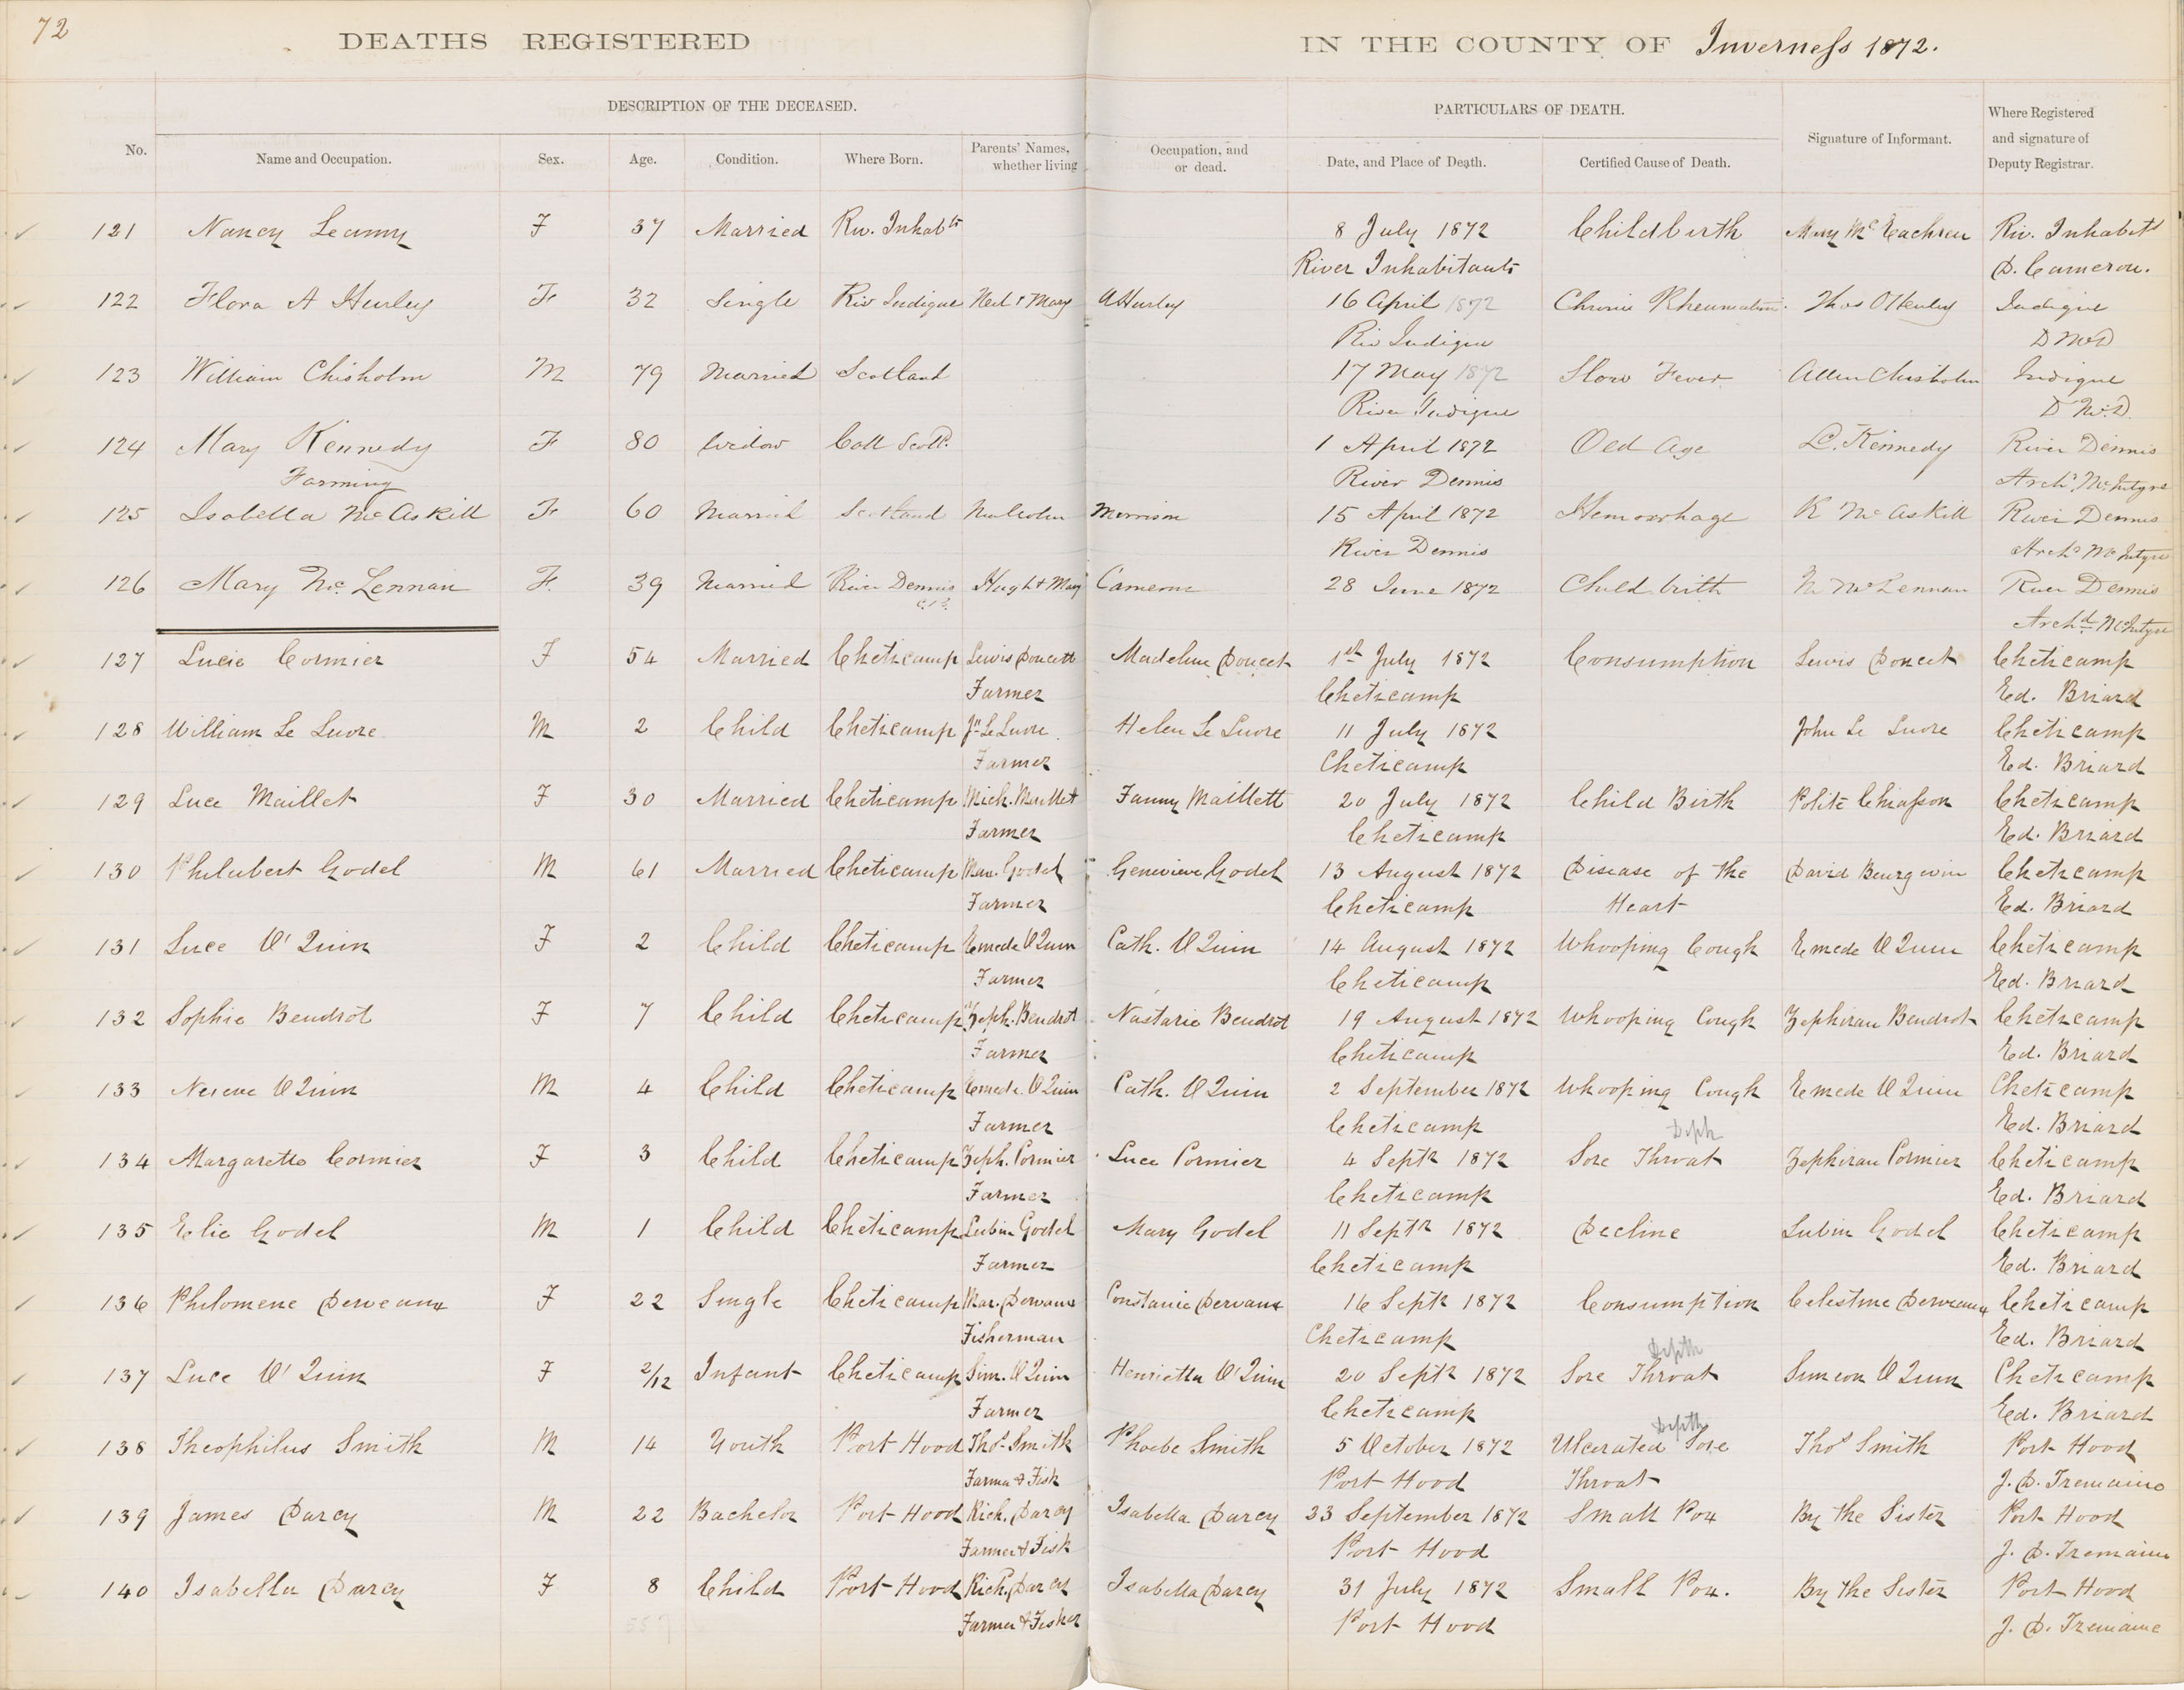 72
DEATHS REGISTERED IN THE COUNTY OF Inverness 1872.
DESCRIPTION OF THE DECEASED. PARTICULARS OF DEATH.
No. Name and Occupation. Sex. Age. Condition. Where Born. Parents' Names, whether living Occupation, and or dead. Date, and Place of Death. Certified Cause of Death. Signature of Informant. Where Registered and signature of Deputy Registrar.
121 Nancy Leamy F 37 Married Riv. Inhabts 8 July 1872 Childbirth Mary McEachren Riv. Inhabits
River Inhabitants D. Cameron.
122 Flora A Hurley F 32 Single Riv Indique Neil & Mary A Hurley 16 April 1872 Chronic Rheumatism. Thos O Henley Indique
Riv Indique D McD
123 William Chisholm M 79 Married Scotland 17 May 1872 Slow Fever Allen Chisholm Indique
River Indique D McD.
124 Mary Kennedy F 80 Widow Coll Scotd. 1 April 1872 Old Age L. Kennedy River Dennis
Farming River Dennis Archd McIntyre
125 Isabella McAskill F 60 Married Scotland Malcolm Morrison 15 April 1872 Hemorrhage K McAskill River Dennis
River Dennis Archd McIntyre
126 Mary McLennan F. 39 Married River Dennis Hugh & Mary Cameron 28 June 1872 Child birth N McLennan River Dennis
C.B. Archd McIntyre
127 Lucie Cormier F 54 Married Cheticamp Lewis Doucett Madeline Doucet 1st July 1872 Consumption Lewis Doucet Cheticamp
Farmer Cheticamp Ed. Briard
128 William Le Luore M 2 Child Cheticamp Jn Le Luore. Helen Le Luore 11 July 1872 John Le Luore Cheticamp
Farmer Cheticamp Ed. Briard
129 Luce Maillet F 30 Married Cheticamp Mich. Maillet Fanny Maillett 20 July 1872 Child Birth Polite Chiasson Cheticamp
Farmer Cheticamp Ed. Briard
130 Philubert Godel M 61 Married Cheticamp Max. Godel Genevieve Godel 13 August 1872 Disease of the David Beurgwin Cheticamp
Farmer Cheticamp Heart Ed. Briard
131 Luce O'Quin F 2 Child Cheticamp Emede O Quin Cath. O Quin 14 August 1872 Whooping Cough Emede O Quin Cheticamp
Farmer Cheticamp Ed. Briard
132 Sophie Beudrot F 7 Child Cheticamp Zeph. Beudrot Nastarie Beudrot 19 August 1872 Whooping Cough Zephiran Beudrot Cheticamp
Farmer Cheticamp Ed. Briard
133 Nereue O Quin M 4 Child Cheticamp Emede O Quin Cath. O Quin 2 September 1872 Whooping Cough Emede O Quin Cheticamp
Farmer Cheticamp Diph Ed. Briard
134 Margarette Cormier F 3 Child Cheticamp Zeph. Cormier Luce Cormier 4 Septr 1872 Sore Throat Zephiran Cormier Cheticamp
Farmer Cheticamp Ed. Briard
135 Elie Godel M 1 Child Cheticamp Lubin Godel Mary Godel 11 Septr 1872 Decline Lubin Godel Cheticamp
Farmer Cheticamp Ed. Briard
136 Philomene Derveaux F 22 Single Cheticamp Mar. Dervaux Constanie Dervaux 16 Septr 1872 Consumption Celestine Derveaux Cheticamp
Fisherman Cheticamp Dipth Ed. Briard
137 Luce O'Quin F 2/12 Infant Cheticamp Sim. O Quin Henrietta O'Quin 20 Septr 1872 Sore Throat Simeon O Quin Cheticamp
Farmer Cheticamp Dipth Ed. Briard
138 Theophilus Smith M 14 Youth Port Hood Thos. Smith Phoebe Smith 5 October 1872 Ulcerated Sore Thos Smith Port Hood
Farmer & Fish Port Hood Throat J. D. Tremaine
139 James Darcy M 22 Bachelor Port Hood Rich. Darcy Isabella Darcy 23 September 1872 Small Pox By the Sister Port Hood
Farmer & Fish Port Hood J. D. Tremaine
140 Isabella Darcy F 8 Child Port Hood Rich. Darcy Isabella Darcy 31 July 1872 Small Pox. By the Sister Port Hood
Farmer & Fisher Port Hood J. D. Tremaine